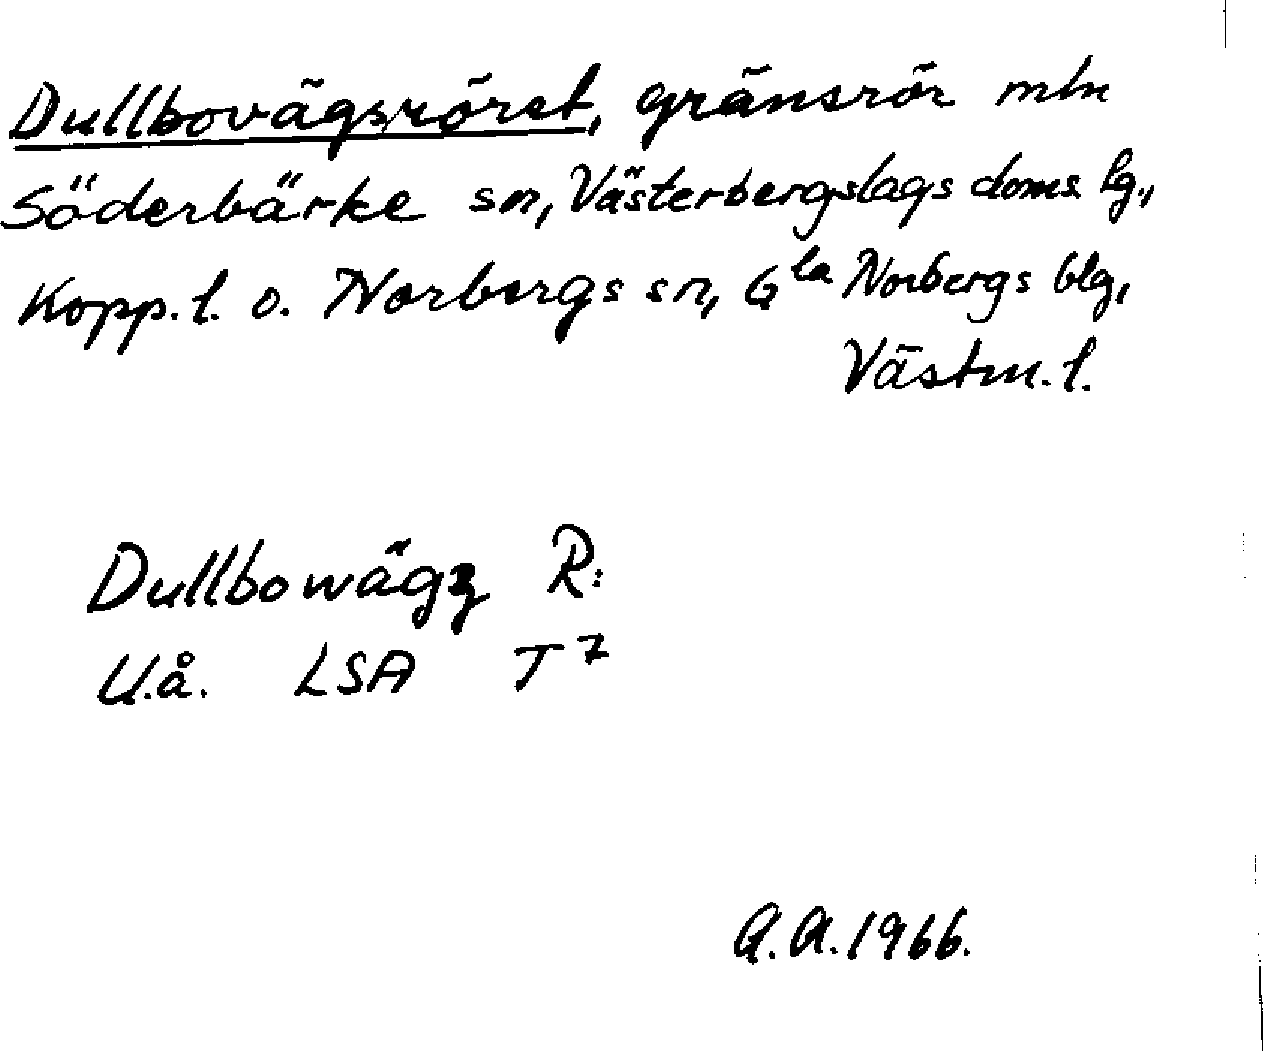 Dullbovägsröret, gränsrör mln
Söderbärke sn, Västerbergslags doms lg.,
Kopp. l. o. Norbergs sn, Gla Norbergs blg,
Västm. l.
Dullbowägz R:
U.å. LSA T 7
A.A. 1966.